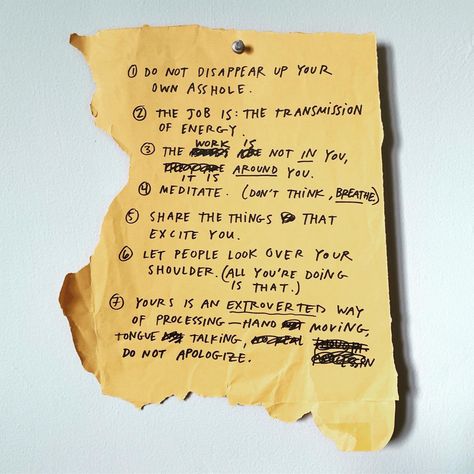 ① DO NOT DISAPPEAR UP YOUR
OWN ASSHOLE.
② THE JOB IS: THE TRANSMISSION
OF ENERGY.
WORK IS
③ THE NOT IN YOU,
AROUND YOU.
IT IS
④ MEDITATE. (DON'T THINK, BREATHE)
⑤ SHARE THE THINGS THAT
EXCITE YOU.
⑥ LET PEOPLE LOOK OVER YOUR
SHOULDER. (ALL YOU'RE DOING
IS THAT.)
⑦ YOURS IS AN EXTROVERTED WAY
OF PROCESSING — HAND MOVING,
TONGUE TALKING,
DO NOT APOLOGIZE.